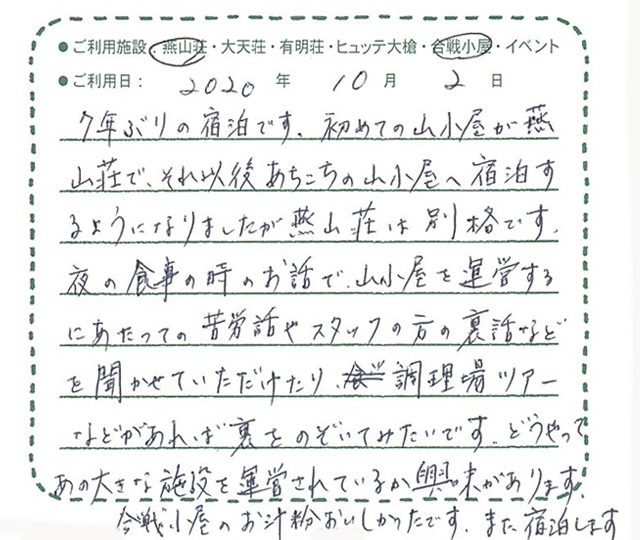 ●ご利用施設：燕山荘・大天荘・有明荘・ヒュッテ大槍・合戦小屋・イベント
●ご利用日： 2020 年 10 月 2 日
7年ぶりの宿泊です。初めての山小屋が燕
山荘で、それ以後あちこちの山小屋へ宿泊す
るようになりましたが燕山荘は別格です。
夜の食事の時のお話で、山小屋を運営する
にあたっての苦労話やスタッフの方の裏話など
を聞かせていただけたり、調理場ツアー
などがあれば裏をのぞいてみたいです。どうやって
あの大きな施設を運営されているか興味があります。
合戦小屋のお汁粉おいしかったです。また宿泊します